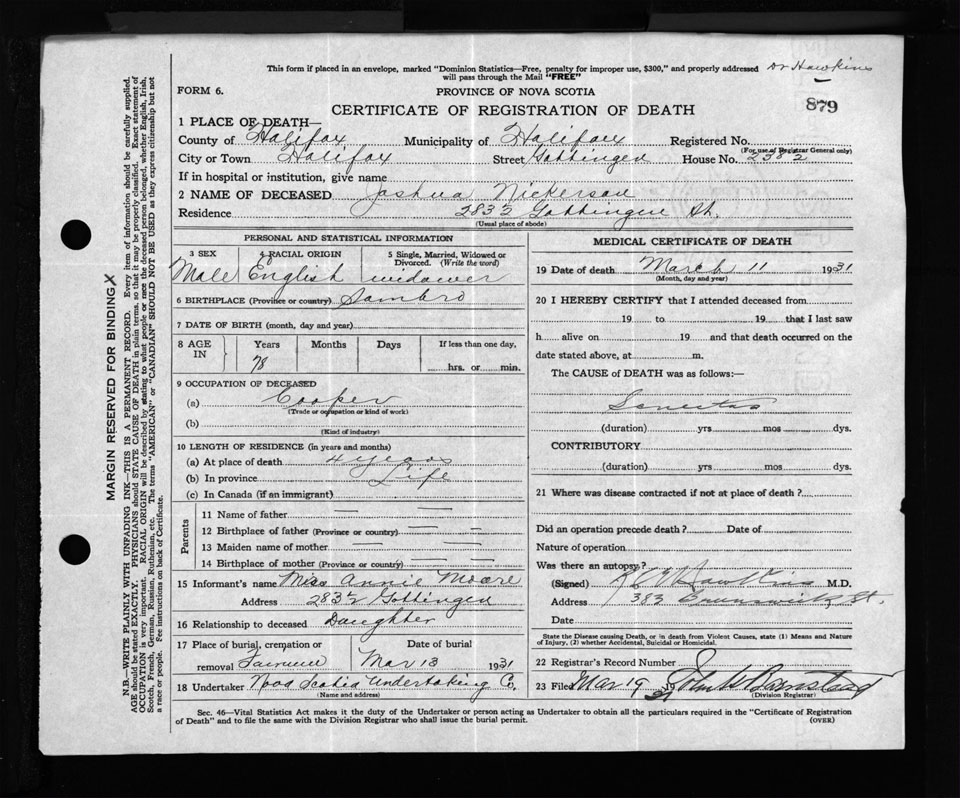 This form if placed in an envelope, marked "Dominion Statistics—Free, penalty for improper use, $300," and properly addressed Dr Hawkins
will pass through the Mail "FREE"
FORM 6. PROVINCE OF NOVA SCOTIA
879
CERTIFICATE OF REGISTRATION OF DEATH
1 PLACE OF DEATH—
County of Halifax Municipality of Halifax Registered No.
(For use of Registrar General only)
City or Town Halifax Street Gottingen House No. 238½
If in hospital or institution, give name
2 NAME OF DECEASED Joshua Nickerson
Residence 283½ Gottingen St.
(Usual place of abode)
PERSONAL AND STATISTICAL INFORMATION
3 SEX 4 RACIAL ORIGIN 5 Single, Married, Widowed or
Divorced. (Write the word)
Male English widower
6 BIRTHPLACE (Province or country) Sambro
7 DATE OF BIRTH (month, day and year)
8 AGE IN Years Months Days If less than one day,
78 hrs. or min.
9 OCCUPATION OF DECEASED
(a) Cooper
(Trade or occupation or kind of work)
(b)
(Kind of industry)
10 LENGTH OF RESIDENCE (in years and months)
(a) At place of death 4 years
(b) In province Life
(c) In Canada (if an immigrant)
Parents
11 Name of father — —
12 Birthplace of father (Province or country) — —
13 Maiden name of mother — —
14 Birthplace of mother (Province or country) — —
15 Informant's name Miss Annie Moore
Address 283½ Gottingen
16 Relationship to deceased Daughter
17 Place of burial, cremation or Date of burial
removal Fairview Mar 13 1931
18 Undertaker Nova Scotia Undertaking C.
(Name and address)
MEDICAL CERTIFICATE OF DEATH
19 Date of death March 11 1931
(Month, day and year)
20 I HEREBY CERTIFY that I attended deceased from
19 to 19 that I last saw
h alive on 19 and that death occurred on the
date stated above, at m.
The CAUSE of DEATH was as follows:—
Senectus
(duration) yrs mos dys.
CONTRIBUTORY
(duration) yrs mos dys.
21 Where was disease contracted if not at place of death?
Did an operation precede death? Date of
Nature of operation
Was there an autopsy?
(Signed) Hawkins M.D.
Address 383 Brunswick St.
Date
State the Disease causing Death, or in death from Violent Causes, state (1) Means and Nature
of Injury, (2) whether Accidental, Suicidal or Homicidal.
22 Registrar's Record Number
23 Filed Mar 19 19 31 John W Barnstead
(Division Registrar)
Sec. 46—Vital Statistics Act makes it the duty of the Undertaker or person acting as Undertaker to obtain all the particulars required in the "Certificate of Registration
of Death" and to file the same with the Division Registrar who shall issue the burial permit. (OVER)
MARGIN RESERVED FOR BINDING X
N.B.—WRITE PLAINLY WITH UNFADING INK—THIS IS A PERMANENT RECORD. Every item of information should be carefully supplied.
AGE should be stated EXACTLY. PHYSICIANS should STATE CAUSE OF DEATH in plain terms, so that it may be properly classified. Exact statement of
OCCUPATION is very important. RACIAL ORIGIN will be described by stating to what people or race the deceased person belonged, whether English, Irish,
Scotch, French, German, Russian, Ruthenian, etc. The terms "AMERICAN" or "CANADIAN" SHOULD NOT BE USED as they express citizenship but not
a race or people. See instructions on back of Certificate.